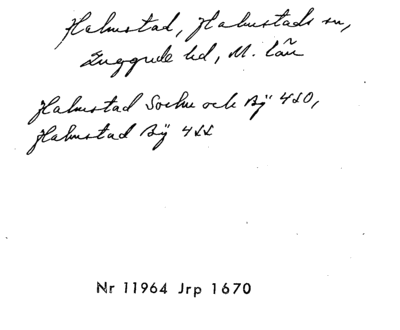 Halmstad, Halmstads sn,
Luggude hd, M. län
Halmstad Socken och By 450,
Halmstad By 455
Nr 11964 Jrp 1670